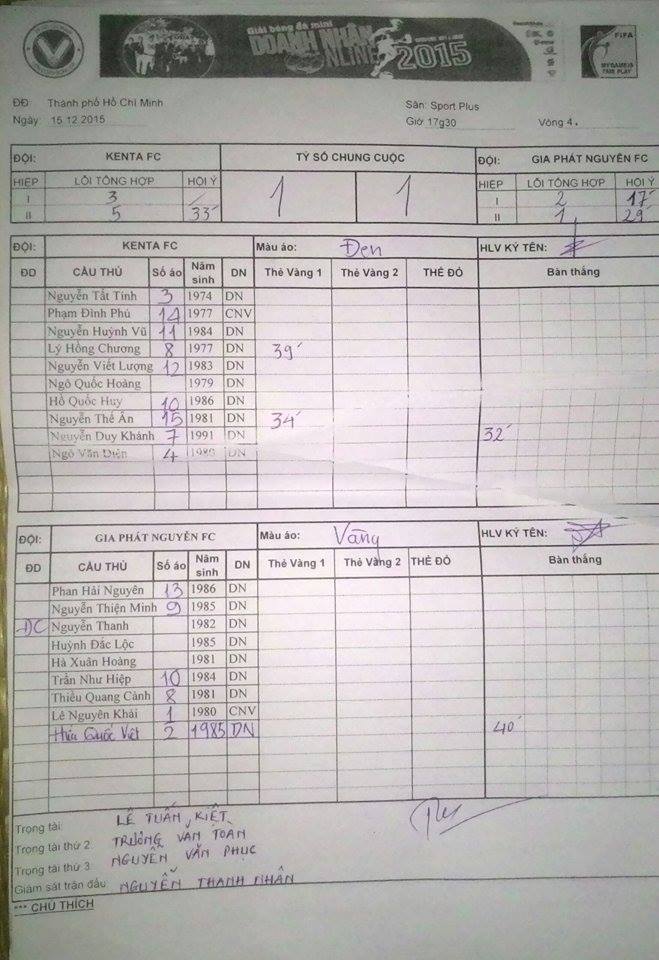 Giải bóng đá mini
DOANH NHÂN
ONLINE 2015
FIFA
MY GAME IS
FAIR PLAY
ĐĐ: Thành phố Hồ Chí Minh
Sân: Sport Plus
Ngày 15.12.2015
Giờ 17g30 Vòng 4.
ĐỘI: KENTA FC TỶ SỐ CHUNG CUỘC ĐỘI: GIA PHÁT NGUYỄN FC
HIỆP LỖI TỔNG HỢP HỘI Ý 1 1 HIỆP LỖI TỔNG HỢP HỘI Ý
I 3 I 2 17'
II 5 33' II 1 29'
ĐỘI: KENTA FC Màu áo: Đen HLV KÝ TÊN:
ĐD CẦU THỦ Số áo Năm sinh DN Thẻ Vàng 1 Thẻ Vàng 2 THẺ ĐỎ Bàn thắng
Nguyễn Tất Tính 3 1974 DN
Phạm Đình Phú 14 1977 CNV
Nguyễn Huỳnh Vũ 11 1984 DN
Lý Hồng Chương 8 1977 DN 39'
Nguyễn Viết Lượng 12 1983 DN
Ngô Quốc Hoàng 1979 DN
Hồ Quốc Huy 10 1986 DN
Nguyễn Thế Ân 15 1981 DN 34'
Nguyễn Duy Khánh 7 1991 DN 32'
Ngô Văn Diện 4 DN
ĐỘI: GIA PHÁT NGUYỄN FC Màu áo: Vàng HLV KÝ TÊN:
ĐD CẦU THỦ Số áo Năm sinh DN Thẻ Vàng 1 Thẻ Vàng 2 THẺ ĐỎ Bàn thắng
Phan Hải Nguyên 13 1986 DN
Nguyễn Thiện Minh 9 1985 DN
ĐC Nguyễn Thanh 1982 DN
Huỳnh Đắc Lộc 1985 DN
Hà Xuân Hoàng 1981 DN
Trần Như Hiệp 10 1984 DN
Thiều Quang Cảnh 8 1981 DN
Lê Nguyên Khải 1 1980 CNV
Hứa Quốc Việt 2 1985 DN 40'
Trọng tài: LÊ TUẤN KIỆT
Trọng tài thứ 2: TRƯƠNG VĂN TOÀN
Trọng tài thứ 3: NGUYỄN VĂN PHỤC
Giám sát trận đấu: NGUYỄN THANH NHÂN
*** CHÚ THÍCH